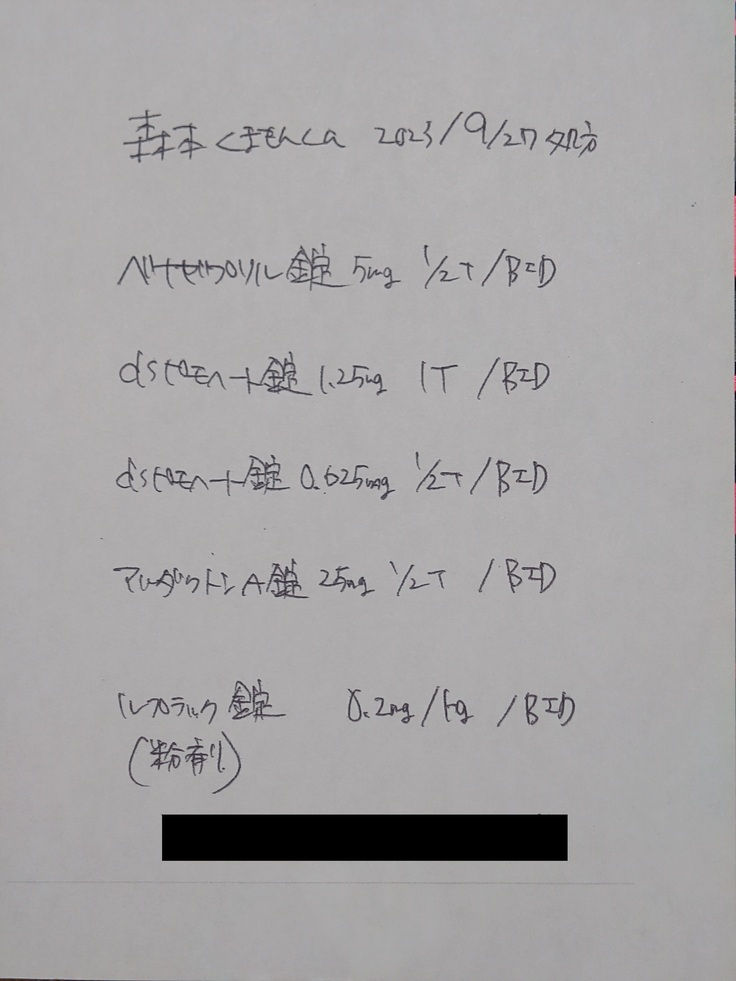 森本くまもんくん 2023/9/27 処方
ベナゼプリル錠 5mg 1/2T/BID
dsピモハート錠 1.25mg 1T /BID
dsピモハート錠 0.625mg 1/2T/BID
アルダクトンA錠 25mg 1/2T /BID
ルプラック錠 0.2mg/kg /BID
(粉剤)